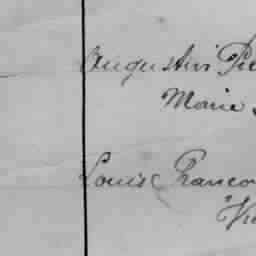 Augustin Pie
Marie
Louis Franco
Vi